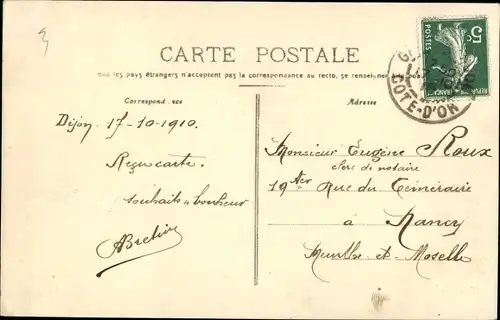 CARTE POSTALE
les pays étrangers n'acceptent pas la correspondance au recto, se
Correspondance
Adresse
Dijon 17-10-1910.
Reçu carte.
souhaits & bonheur
Monsieur Eugène Roux
clerc de notaire
19ter Rue du Téméraire
à Nancy
Meurthe et Moselle
5c
POSTES
COTE-D'OR